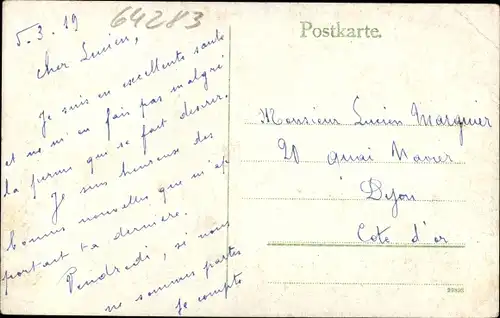 5.3.19
64283
Cher Lucien,
Je suis en excellente santé
et ne m'en fais pas malgré
la perme qui se fait désirer.
Je suis heureux des
bonnes nouvelles que m'ap
portait ta dernière.
Vendredi, si nous
ne sommes partis
je compte
Postkarte.
Monsieur Lucien
20 Quai
Dijon
Cote d'or